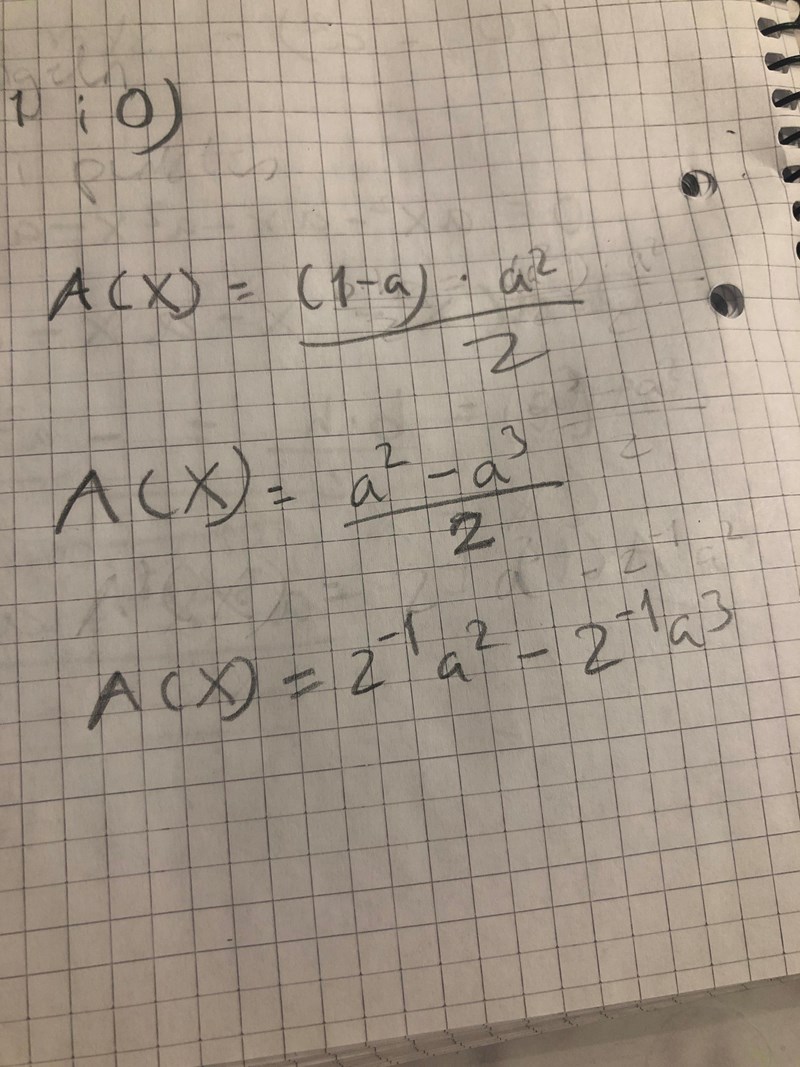 1 ; 0)
A(X) = (1-a) · a² / 2
A(X) = a² - a³ / 2
A(X) = 2⁻¹ a² - 2⁻¹ a³